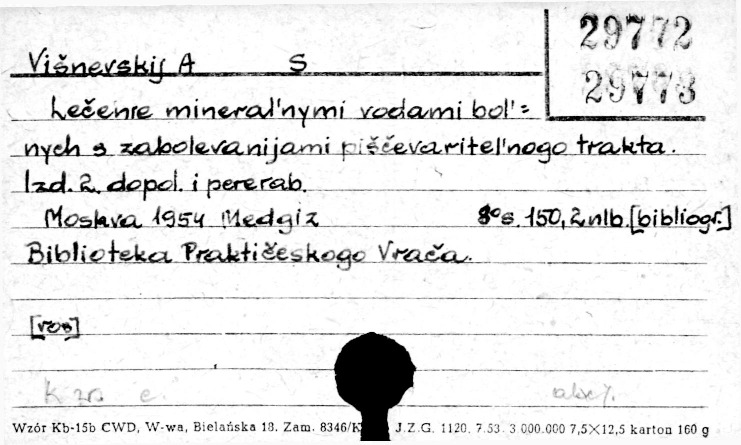 29772
29773
Višnevskij A S
Lečenie mineral'nymi vodami bol'=
nych s zabolevanijami piščevaritel'nogo trakta.
Izd. 2. dopol. i pererab.
Moskva 1954 Medgiz 8° s. 150, 2 nlb. [bibliogr.]
Biblioteka Praktičeskogo Vrača.
[ros]
Wzór Kb-15b CWD, W-wa, Bielańska 18. Zam. 8346/K J.Z.G. 1120. 7.53. 3 000.000 7,5×12,5 karton 160 g